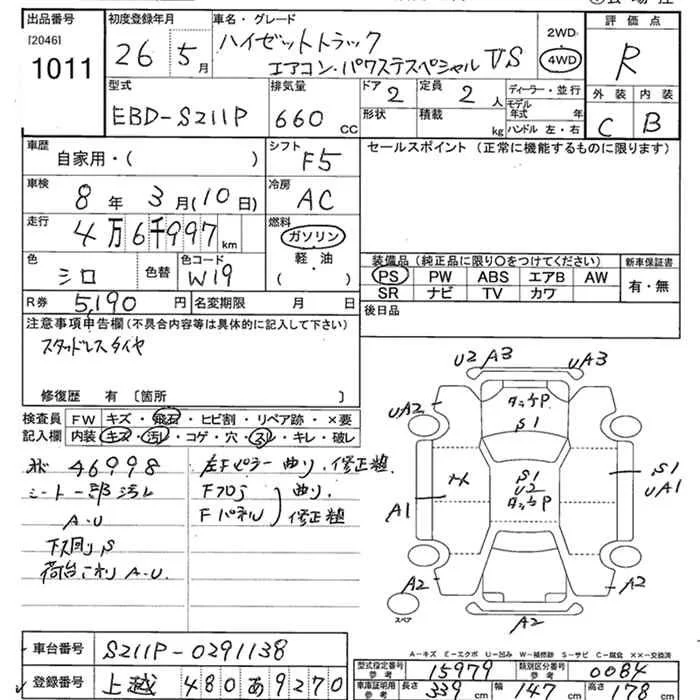 出品番号 初度登録年月 車名・グレード 評価点
[2046]
1011 26 5月 ハイゼットトラック
エアコン・パワステスペシャル VS 2WD 4WD R
型式 排気量 ドア 定員 ディーラー・並行 外装 内装
EBD-S211P 660cc 2 2人 モデル年式 年
形状 積載 kg ハンドル 左・右 C B
車歴 シフト セールスポイント (正常に機能するものに限ります)
自家用・( ) F5
車検 冷房
8年 3月(10日) AC
走行 燃料
4万6千997km ガソリン
軽・油
( )
色 色コード 装備品 (純正品に限り○をつけてください) 新車保証書
シロ 色替 W19 PS PW ABS エアB AW 有・無
SR ナビ TV カワ
R券 5,190円 名変期限 月 日 後日品
注意事項申告欄 (不具合内容等は具体的に記入して下さい)
スタッドレスタイヤ
修復歴 有 〔箇所 〕
検査員 FW キズ・飛石・ヒビ割・リペア跡・×要
記入欄 内装 キズ・汚レ・コゲ・穴・スレ・キレ・破レ
46998 左Fピラー曲り、修正粗
シート一部汚レ Fフロア 曲り、
A・U Fパネル 修正粗
下回りS
荷台 A・U
U2 A3 UA3
UA2
S1
S1
U2
S1
UA1
A1
A2 A2
A2
スペア
A-キズ E-エクボ U-凹み W-補修跡 S-サビ C-腐食 ××-交換済
車台番号 S211P-0291138
型式指定番号 参考 15979 類別区分番号 参考 0084
登録番号 上越 480 あ 9270
車庫証明用 参考 長さ 339cm 幅 147cm 高さ 178cm